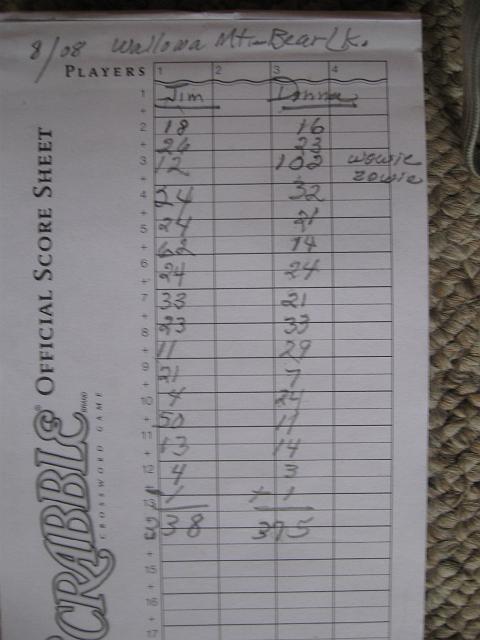 8/08 Wallowa Mt-Bear Lk.
PLAYERS 1 2 3 4
1 Jim Donna
+
2 18 16
+ 26 23
3 12 102 wowie zowie
+
4 24 32
+
5 24 21
+ 62 14
6 24 24
+
7 33 21
+
8 23 33
+ 11 29
9 21 7
+
10 4 24
+ 50 11
11 13 14
+
12 4 3
+ 1 + 1
338 375
+
15
+
16
+
17
OFFICIAL SCORE SHEET
SCRABBLE® BRAND
CROSSWORD GAME